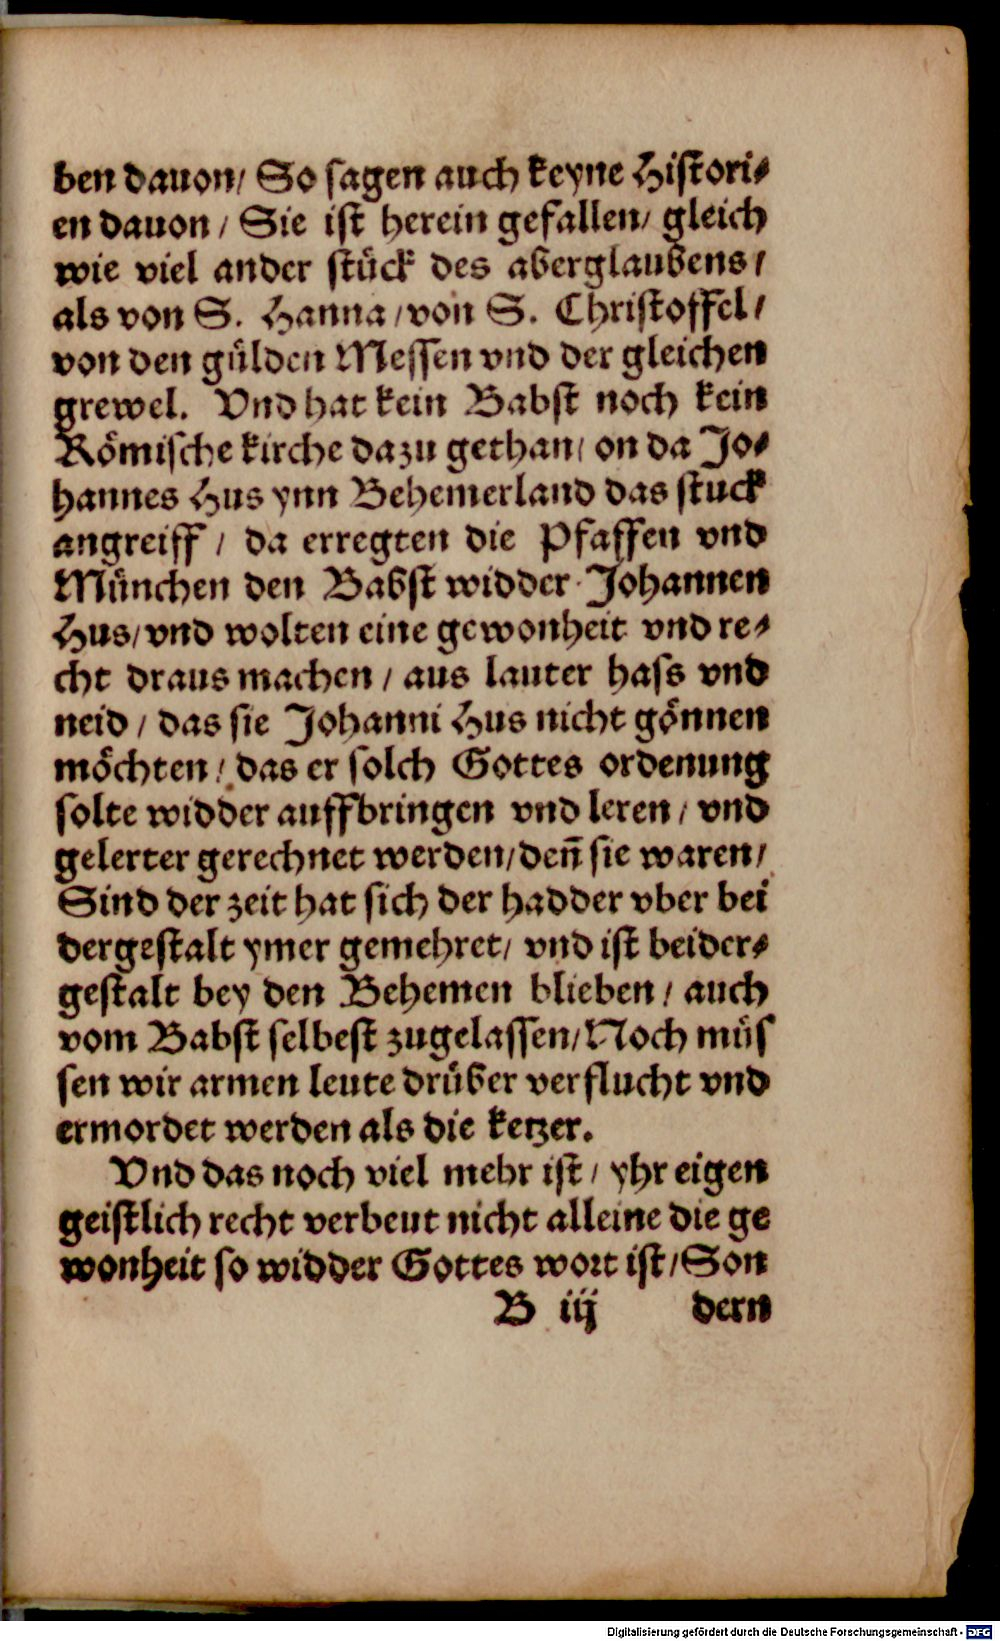 ben dauon/ So sagen auch keyne Histori⸗
en dauon/ Sie ist herein gefallen/ gleich
wie viel ander stück des aberglaubens/
als von S. Hanna/von S. Christoffel/
von den gülden Messen vnd der gleichen
grewel. Vnd hat kein Babst noch kein
Römische kirche dazu gethan/ on da Jo⸗
hannes Hus ynn Behemerland das stuck
angreiff/ da erregten die Pfaffen vnd
München den Babst widder Johannen
Hus/vnd wolten eine gewonheit vnd re⸗
cht draus machen/ aus lauter hass vnd
neid/ das sie Johanni Hus nicht gönnen
möchten/ das er solch Gottes ordenung
solte widder auffbringen vnd leren/ vnd
gelerter gerechnet werden/deñ sie waren/
Sind der zeit hat sich der hadder vber bei
dergestalt ymer gemehret/ vnd ist beider⸗
gestalt bey den Behemen blieben/ auch
vom Babst selbest zugelassen/Noch müs
sen wir armen leute drüber verflucht vnd
ermordet werden als die ketzer.
Vnd das noch viel mehr ist/ yhr eigen
geistlich recht verbeut nicht alleine die ge
wonheit so widder Gottes wort ist/Son
B iij dern
Digitalisierung gefördert durch die Deutsche Forschungsgemeinschaft - DFG